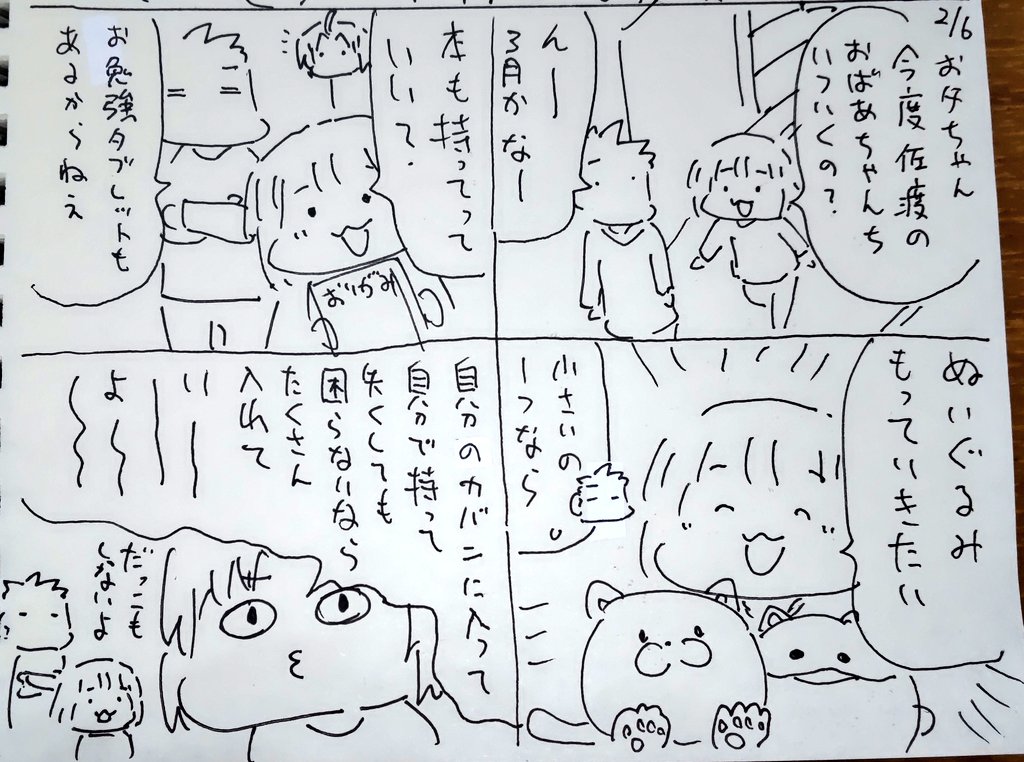 2/6
お夕ちゃん
今度佐渡の
おばあちゃんち
いついくの?
んー
3月かなー
本も持ってって
いい?
おりがみ
お勉強タブレットも
あるからねぇ
ぬいぐるみ
もっていきたい
小さいの
1つなら
自分のカバンに入って
自分で持って
失くしても
困らないなら
たくさん
入れて
いーーー
よ〜〜
だっこも
しないよ